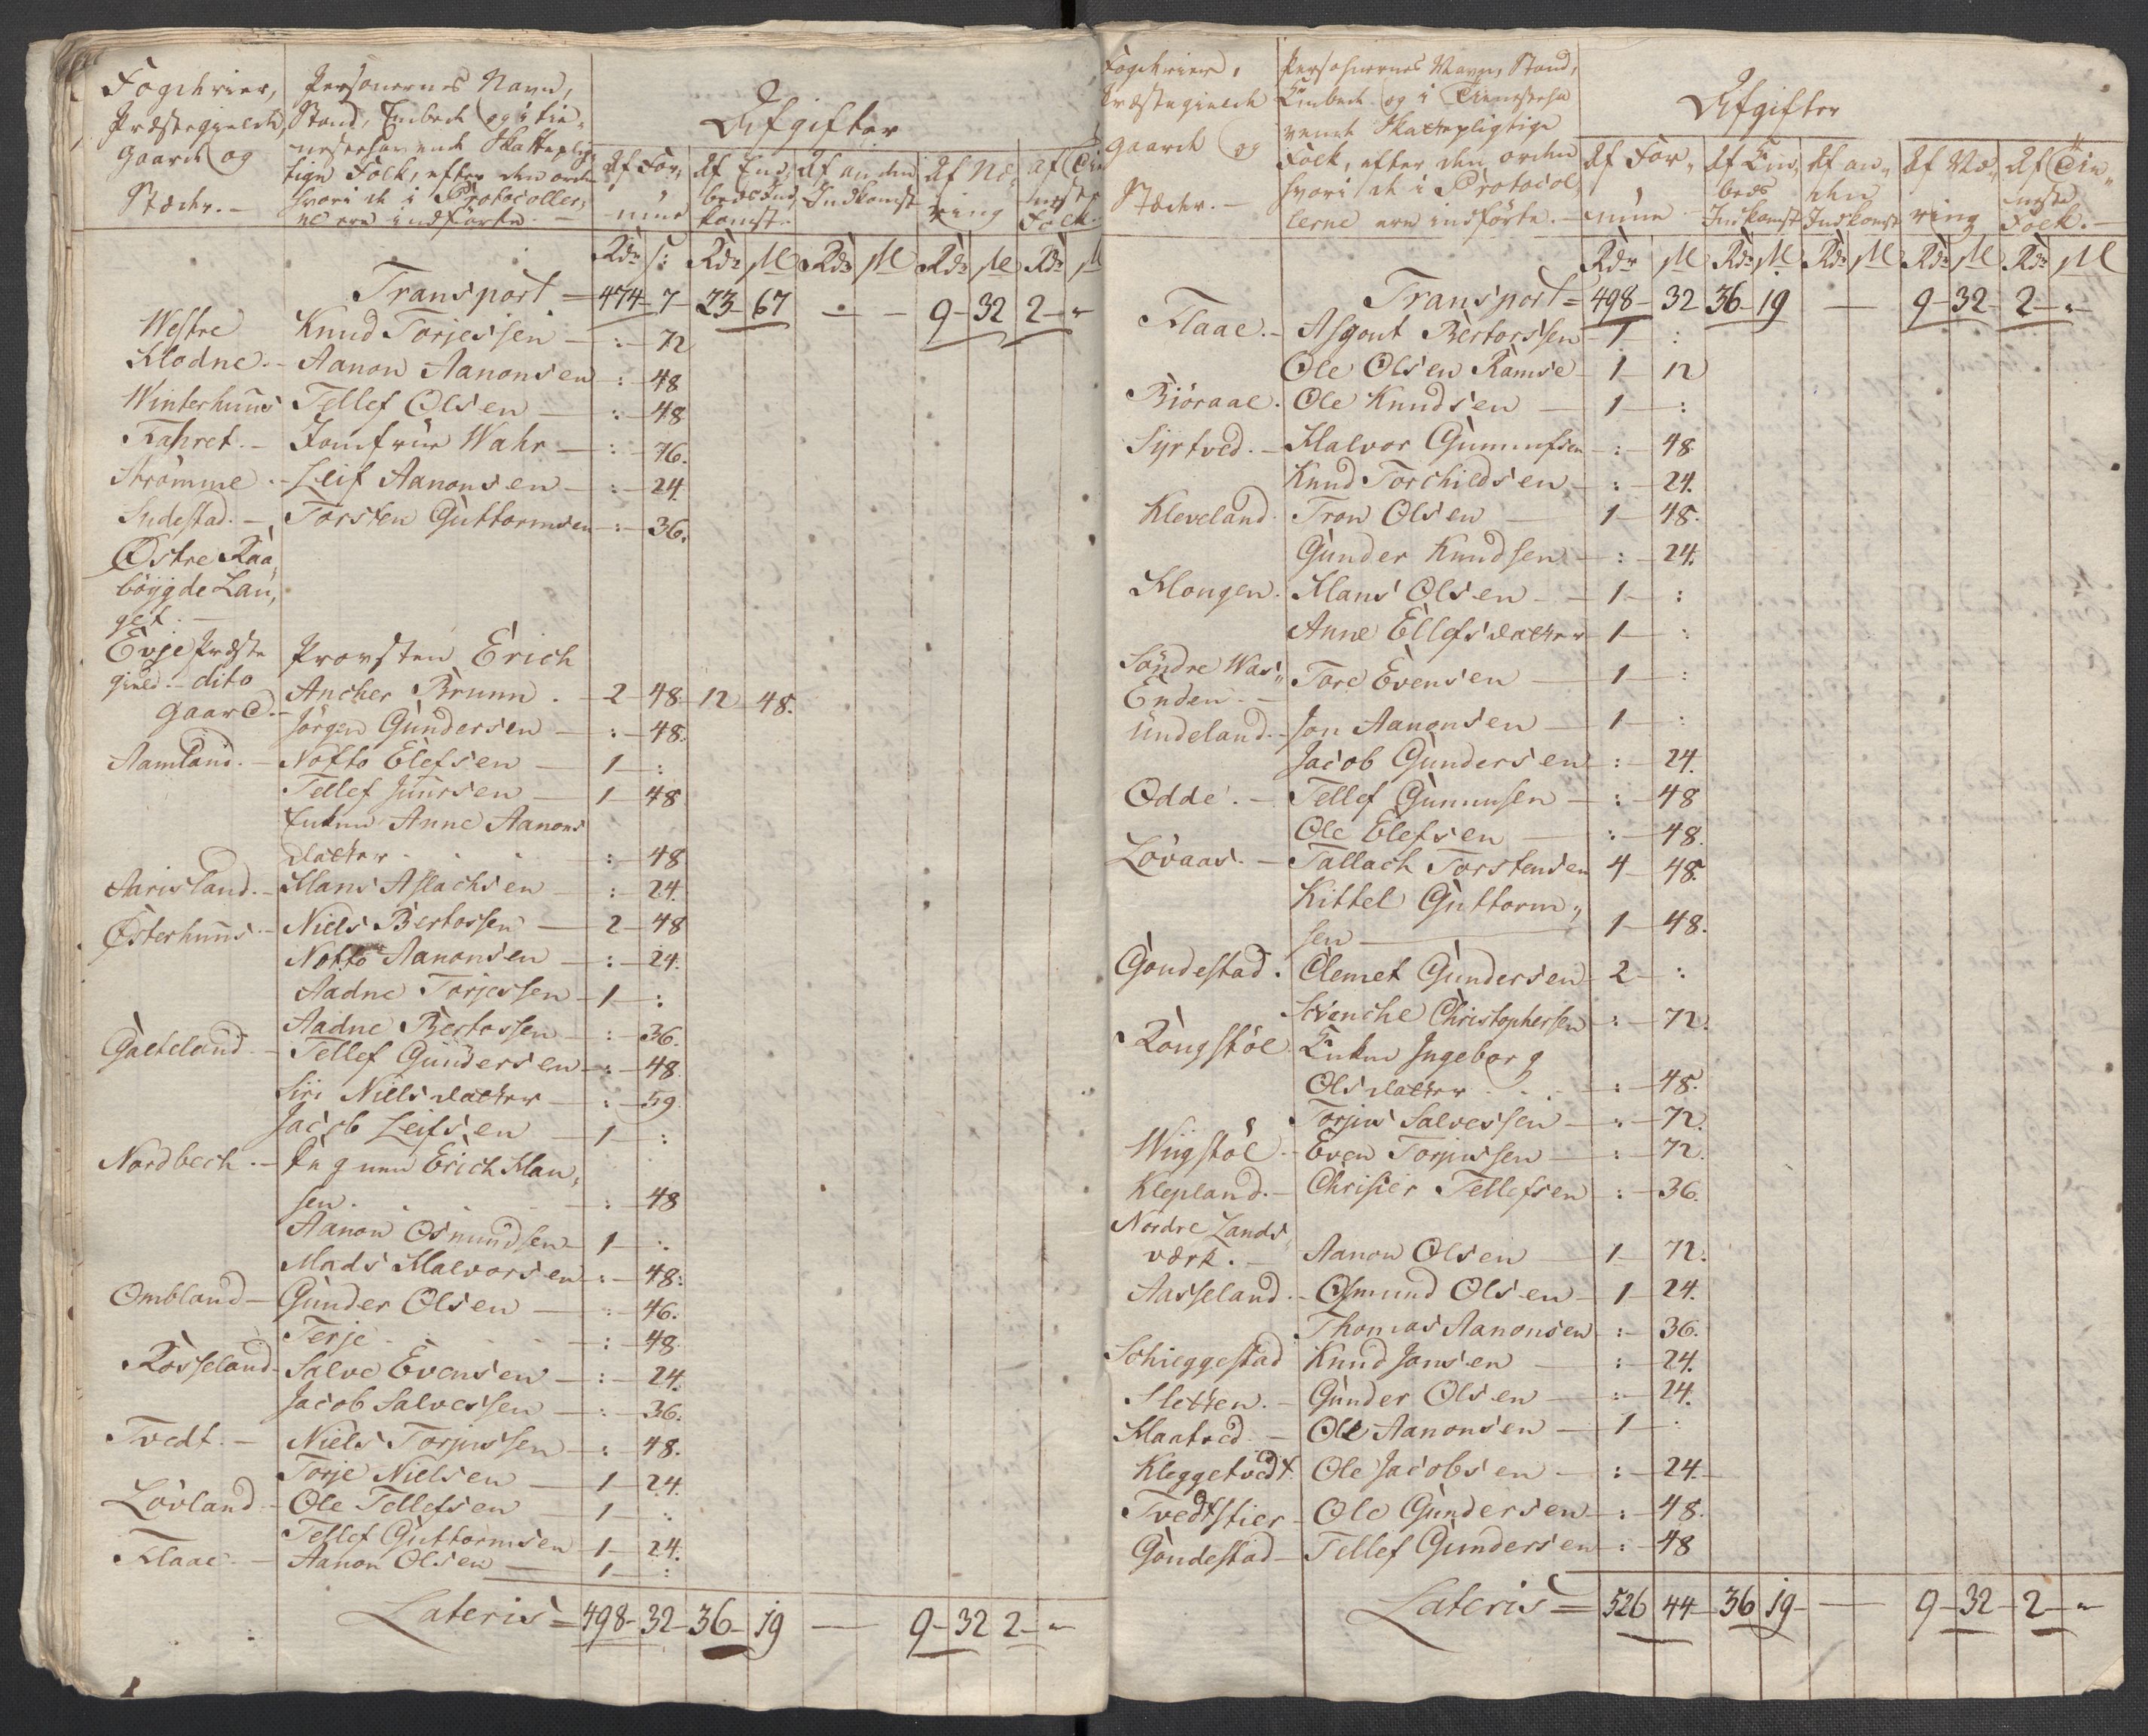 Fogderier, Præstegielde, Gaarde og Stæder. —
Personernes Navn, Stand, Embede og i tienestehavende Skattepligtige Folk, efter den orden hvori de i Protocollerne ere indførte. —
Afgifter
Af Formue
Af Embeds Indkomst
Af anden Indkomst
Af Næring
Af Tieneste Folk.
Rdr s: Rdr M Rdr M Rdr M Rdr M
Transport = 474 - 7 - 23 - 67 — 9 - 32 2 - "
Westre Knud Torjessen — : - 72
Klodne. - Aanon Aanonsen : 48
Winterhuus Tellef Olsen — : - 48
Fahret. - Jomfrue Wahr — : - 76.
Strömme. - Leif Aanonsen — : - 24.
Sudestad. - Torsten Guttormsen - : - 36.
Østre Raa,
böygde Lau,
get. —
Evje Præste Provsten Erich
gield. - dito Ancher Brunn. - 2 - 48 - 12 - 48.
gaard. - Jörgen Gundersen — : - 48.
Aamland. - Nofto Elefsen — 1 - :
Tellef Juursen — 1 - 48
Enken Anne Aanons
datter . . . : - 48
Aarisland. - Hans Aslachsen — : - 24.
Østerhuus - Niels Bertossen — 2 - 48
Notto Aanonsen — : - 24.
Aadne Torjessen - 1 - :
Aadne Bertossen — : - 36.
Gaeteland. - Tellef Gundersen - : - 48
Siri Nielsdatter — : - 59.
Jacob Leifsen — 1 - :
Nordbech. - Erich Han,
sen. . . . : - 48
Aanon Osmundsen - 1 - :
Mads Halvorsen - : - 48:
Ombland - Gunder Olsen — : - 46.
Terje . . . - : - 48.
Rosseland - Salve Evensen — : - 24.
Jacob Salvessen — : - 36.
Tvedt. - Niels Torjussen - : - 48.
Torje Nielsen — 1 - 24.
Lövland - Ole Tellefsen — 1 - :
Tellef Guttormsen - 1 - 24.
Flaae. - Aanon Olsen — 1 - :
Lateris = 498 - 32 - 36 - 19 — 9 - 32 2 - "
Fogderier, Præstegielde Gaarde og Stæder. —
Personernes Navn, Stand, Embede og i Tienestehavende Skattepligtige Folk, efter den orden hvori de i Protocollerne ere indförte. —
Afgifter
Af Formue
Af Embeds Indkomst
Af anden Indkomst
Af Næring
Af Tieneste Folk. —
Rdr M Rdr M Rdr M Rdr M Rdr M
Transport = 498 - 32 36 - 19 — 9 - 32 - 2 - "
Flaae. - Asgout Bertorssen - 1 - :
Ole Olsen Ramse - 1 - 12
Biöraae. Ole Knudsen — 1 - :
Syrtved. - Halvor Gunnufsen - : - 48
Knud Torchildsen - : - 24.
Kleveland. Tron Olsen — 1 - 48.
Gunder Knudsen - : - 24.
Hougen. Hans Olsen - - 1 - :
Anne Ellefsdatter - 1 - :
Söndre Was„ Tore Evensen — 1 - :
Enden. -
Undeland. - Jon Aanonsen — 1 - :
Jacob Gundersen : - 24.
Odde. - Tellef Gunnusen - : - 48
Ole Elefsen — : - 48.
Lövaas. - Tallach Torstensen 4 - 48.
Kittel Guttorm„
sen — 1 - 48.
Goudestad. Clemet Gundersen - 2 - :
Svenche Christophersen - : - 72.
Rougstöe. Enken Ingeborg
Olsdatter . . . : - 48.
Torjus Salvessen - : - 72.
Wiigstöe. - Even Torjussen — : - 72.
Klepland. - Chrisier Tellefsen : - 36.
Nordre Lands,
værk. - Aanon Olsen — 1 - 72.
Aasseland. - Osmund Olsen - 1 - 24.
Thomas Aanonsen - : - 36.
Schieggestad Knud Jonsen — : - 24.
Sletten. - Gunder Olsen — : - 24.
Haatved. - Ole Aanonsen — 1 -
Kleggetvedt. Ole Jacobsen — : - 24. -
Tvedtstier - Ole Gundersen - : - 48.
Goudestad - Tellef Gundersen - : - 48
Lateris = 526 44 - 36 19 — 9 - 32 - 2 - "